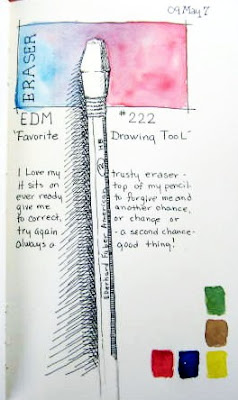 09 May 7
ERASER
EDM #222
"Favorite Drawing Tool"
I Love my trusty eraser -
it sits on top of my pencil
ever ready to forgive me and
give me another chance,
to correct, or change or
try again - a second chance -
always a good thing!
Eberhard Faber American
2 HB